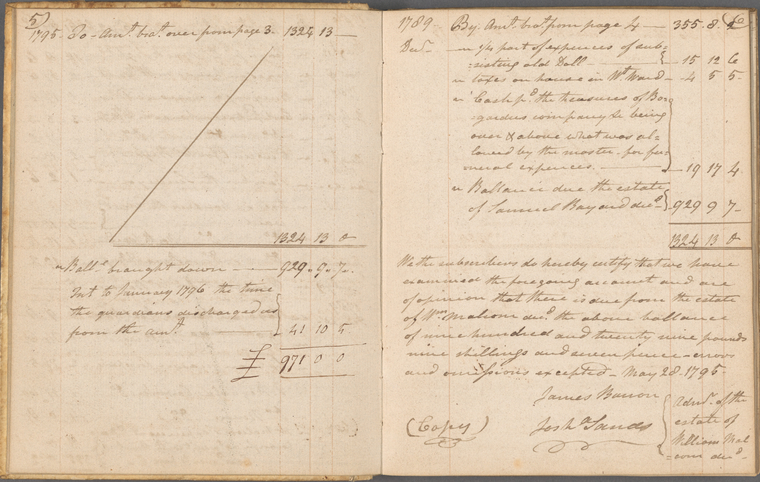 5)
1795 To Amt brot over from page 3. 1324 13 —
1324 13 0
" Ballce brought down — 929. 9. 7.
Int to January 1796 the time
the guardians discharged us
from the amt } 41 10 5
£ 971 0 0
(6
1789 By Amt brot from page 4 — 355. 8. 2
Decr — " 1/4 part of expences of sub=
sisting old Doll — } 15 12 6
" taxes on house in Wt Ward — 4 5 5.
" Cash pd the treasures of Bo=
gardus company &c being
over & above what was al=
lowed by the master for fu=
neral expences. — } 19 17 4.
" Ballance due the estate
of Samuel Bayard decd } 929 9 7
1324 13 0
We the subscribers do hereby certify that we have
examined the foregoing account and are
of opinion that there is due from the estate
of Wm Malcom decd the above ballance
of nine hundred and twenty nine pounds
nine shillings and seven pence — errors
and omissions excepted — May 28. 1795 —
James Barron
(Copy) Josh Sands
} Admrs of the
estate of
William Mal
=com decd